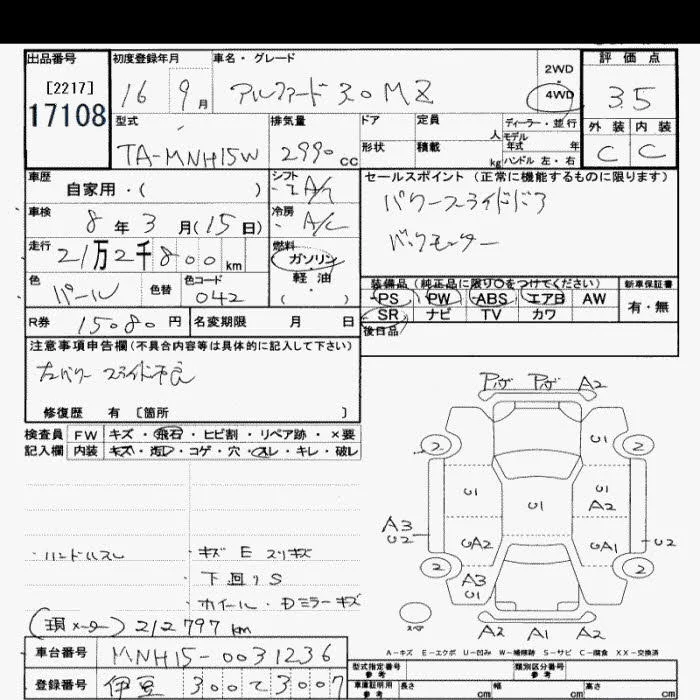 出品番号 初度登録年月 車名・グレード 評価点
[2217] 2WD
17108 16 9月 アルファード 3.0 MZ 4WD 3.5
型式 排気量 ドア 定員 人 ディーラー・並行 外装 内装
モデル年式 年
TA-MNH15W 2990cc 形状 積載 kg ハンドル 左・右 C C
車歴 シフト セールスポイント(正常に機能するものに限ります)
自家用・( ) A/T
車検 冷房 パワースライドドア
8年3月(15日) A/C バックモニター
走行 燃料
21万2千800km ガソリン
色 色替 色コード 軽油 装備品(純正品に限り〇をつけてください) 新車保証書
パール 042 ( ) PS PW ABS エアB AW 有・無
R券 15080円 名変期限 月 日 SR ナビ TV カワ
後日品
注意事項申告欄(不具合内容等は具体的に記入して下さい)
左パワースライド不良
修復歴 有 [箇所 ]
検査員 FW キズ・飛石・ヒビ割・リペア跡・×要
記入欄 内装 キズ・汚レ・コゲ・穴・スレ・キレ・破レ
A2
2 U1 2
U1 U1 U1
A2
A3
U2 UA2 UA1 U2
2 A3 2
U1
・ハンドルスレ ・キズ E スリキズ
下回り S
ホイール・Dミラーキズ
A2 A1 A2
(現メーター) 212797 km
A-キズ E-エクボ U-凹み W-補修跡 S-サビ C-腐食 XX-交換済
車台番号 MNH15-0031236
型式指定番号 参考 類別区分番号 参考
登録番号 伊豆 300 て 3007
車庫証明用 参考 長さ cm 幅 cm 高さ cm